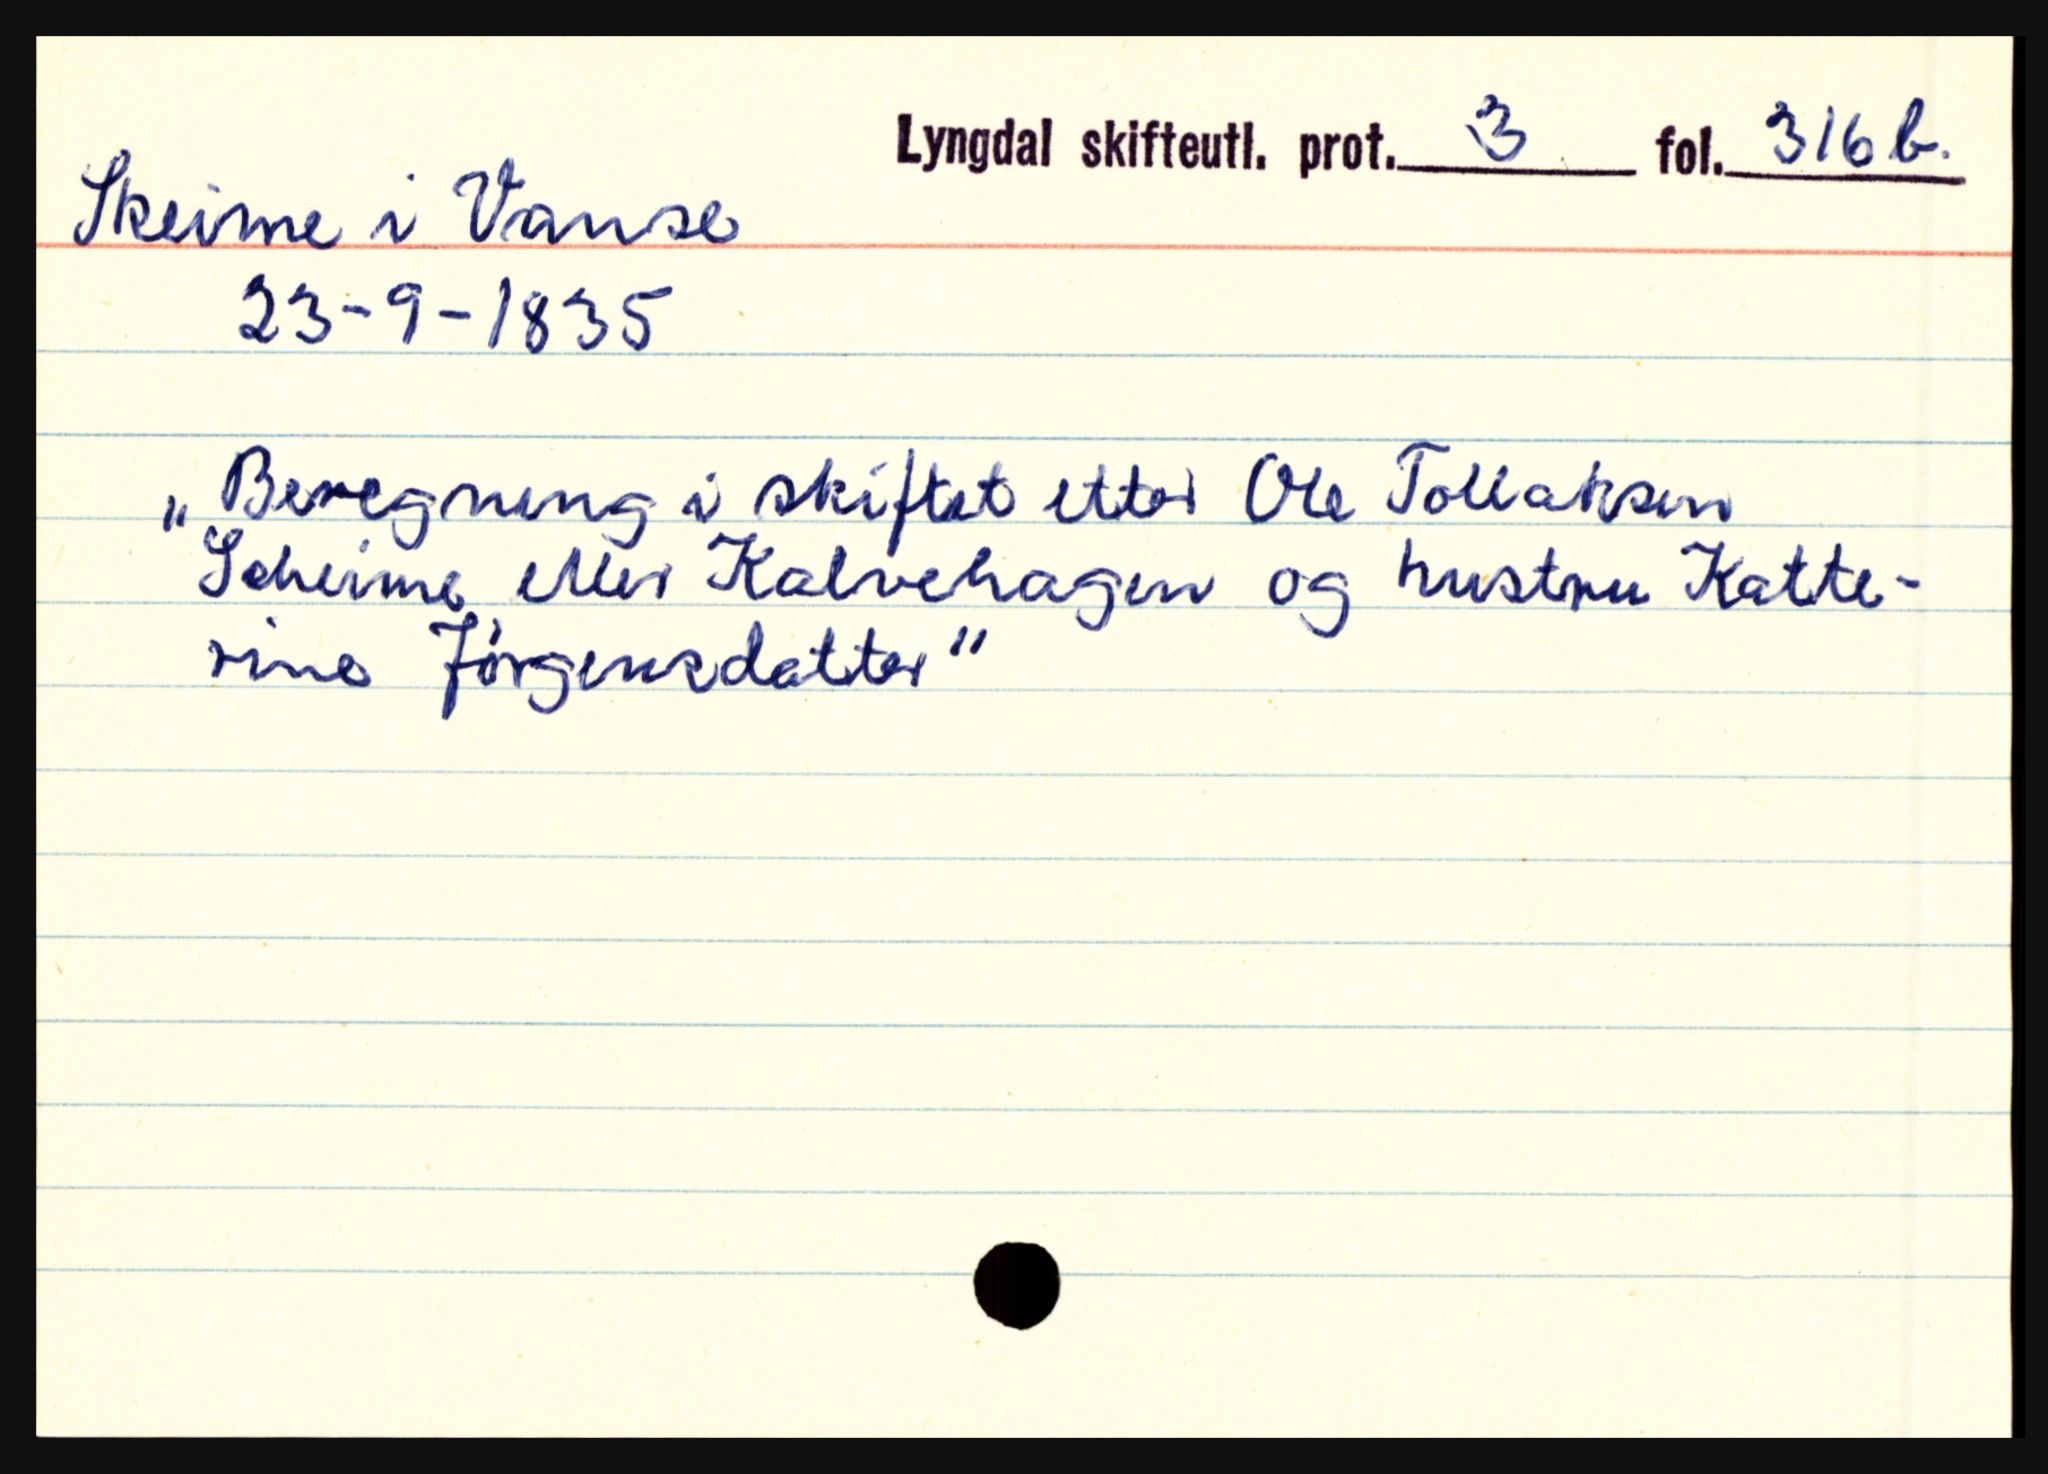 Lyngdal skifteutl. prot. 3 fol. 316 b.
Skeime i Vanse
23-9-1835
„Beregning i skiftet etter Ole Tollaksen
Scheime eller Kalvehagen og hustru Katte-
rine Jörgensdatter"